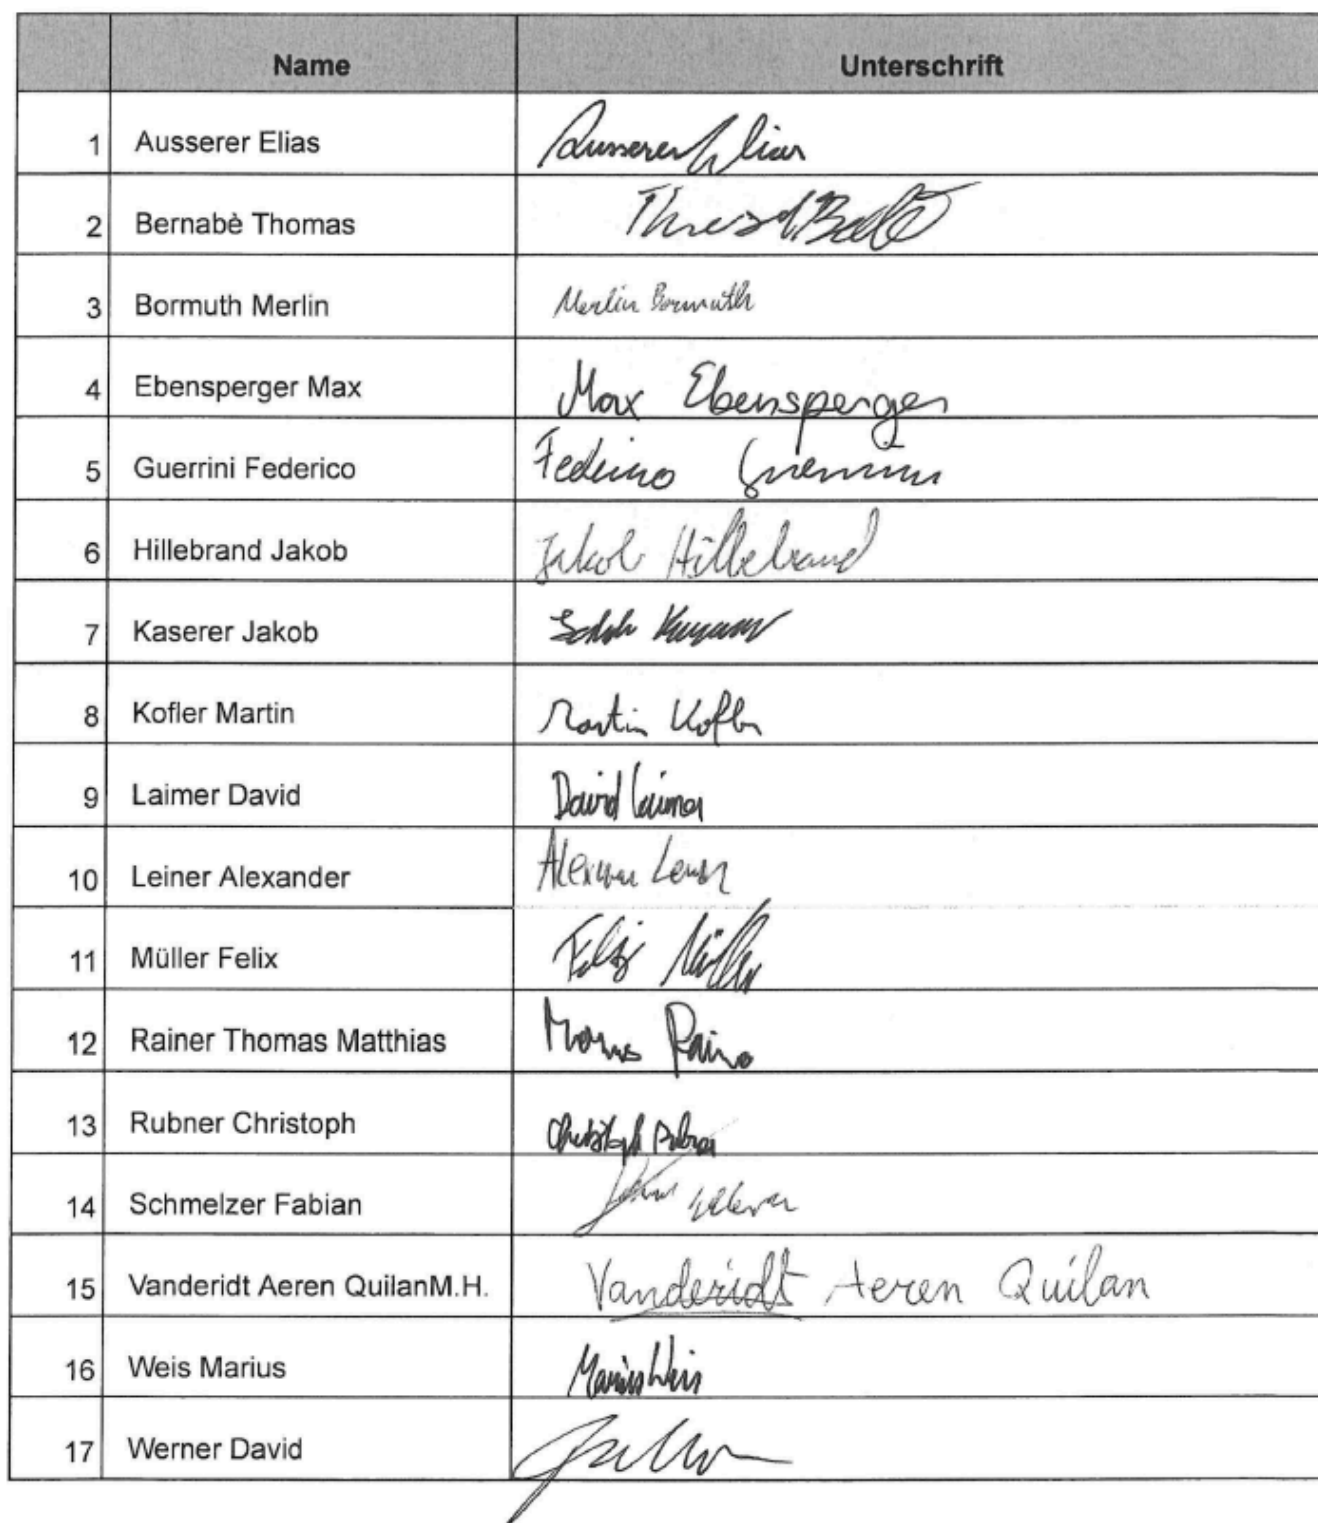 Name Unterschrift
1 Ausserer Elias Ausserer Elias
2 Bernabè Thomas
3 Bormuth Merlin Merlin Bormuth
4 Ebensperger Max Max Ebensperger
5 Guerrini Federico Federico Guerrini
6 Hillebrand Jakob Jakob Hillebrand
7 Kaserer Jakob
8 Kofler Martin Martin Kofler
9 Laimer David David Laimer
10 Leiner Alexander
11 Müller Felix Felix Müller
12 Rainer Thomas Matthias
13 Rubner Christoph Christoph Rubner
14 Schmelzer Fabian
15 Vanderidt Aeren QuilanM.H. Vanderidt Aeren Quilan
16 Weis Marius Marius Weis
17 Werner David